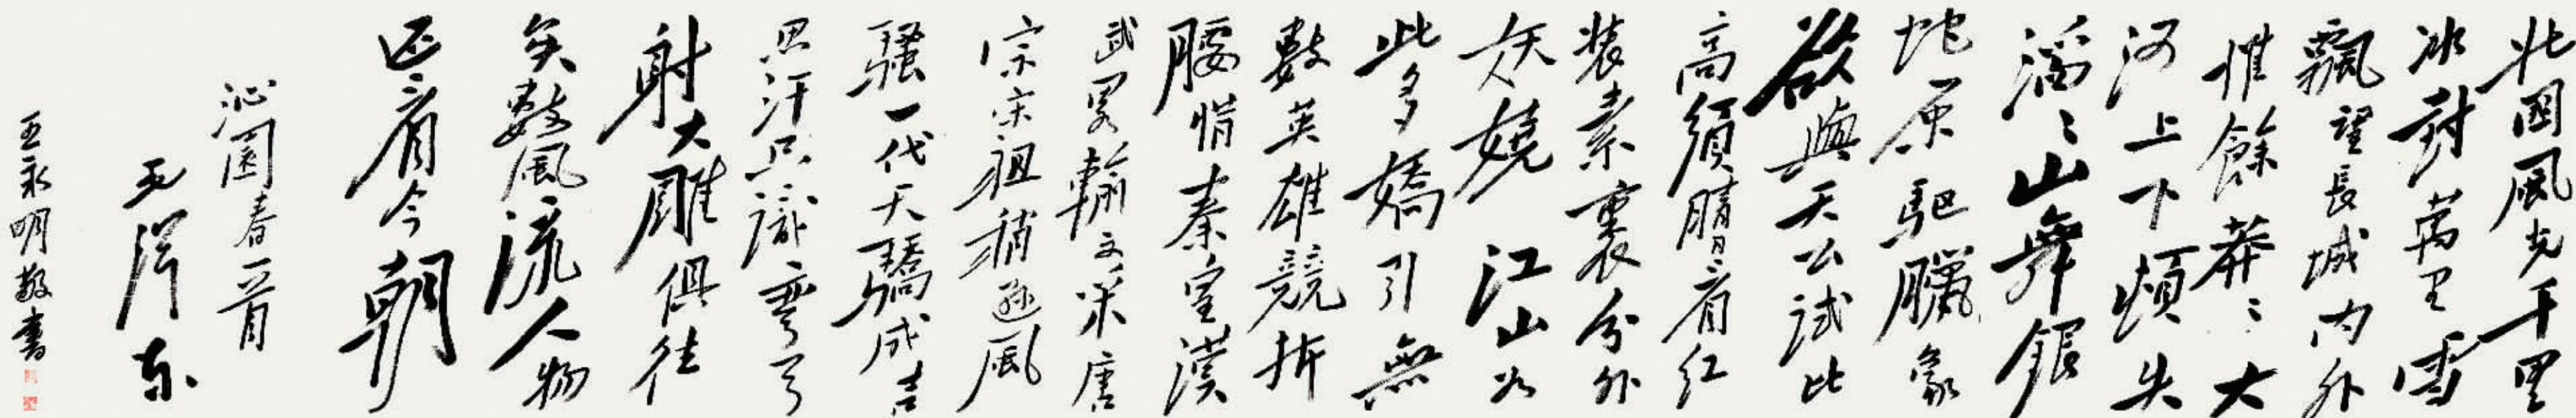 北国風光千里
冰封萬里雪
飄望長城内外
惟餘莽〻大
河上下頓失
滔〻山舞銀
蛇原馳臘象
欲與天公試比
高須晴日看红
装素裹分外
妖嬈江山如
此多嬌引無
數英雄競折
腰惜秦皇漢
武畧輸文采唐
宗宋祖稍遜風
騷一代天驕成吉
思汗只識彎弓
射大雕俱往
矣數風流人物
还看今朝
沁園春一首
毛澤东
王永明敬書